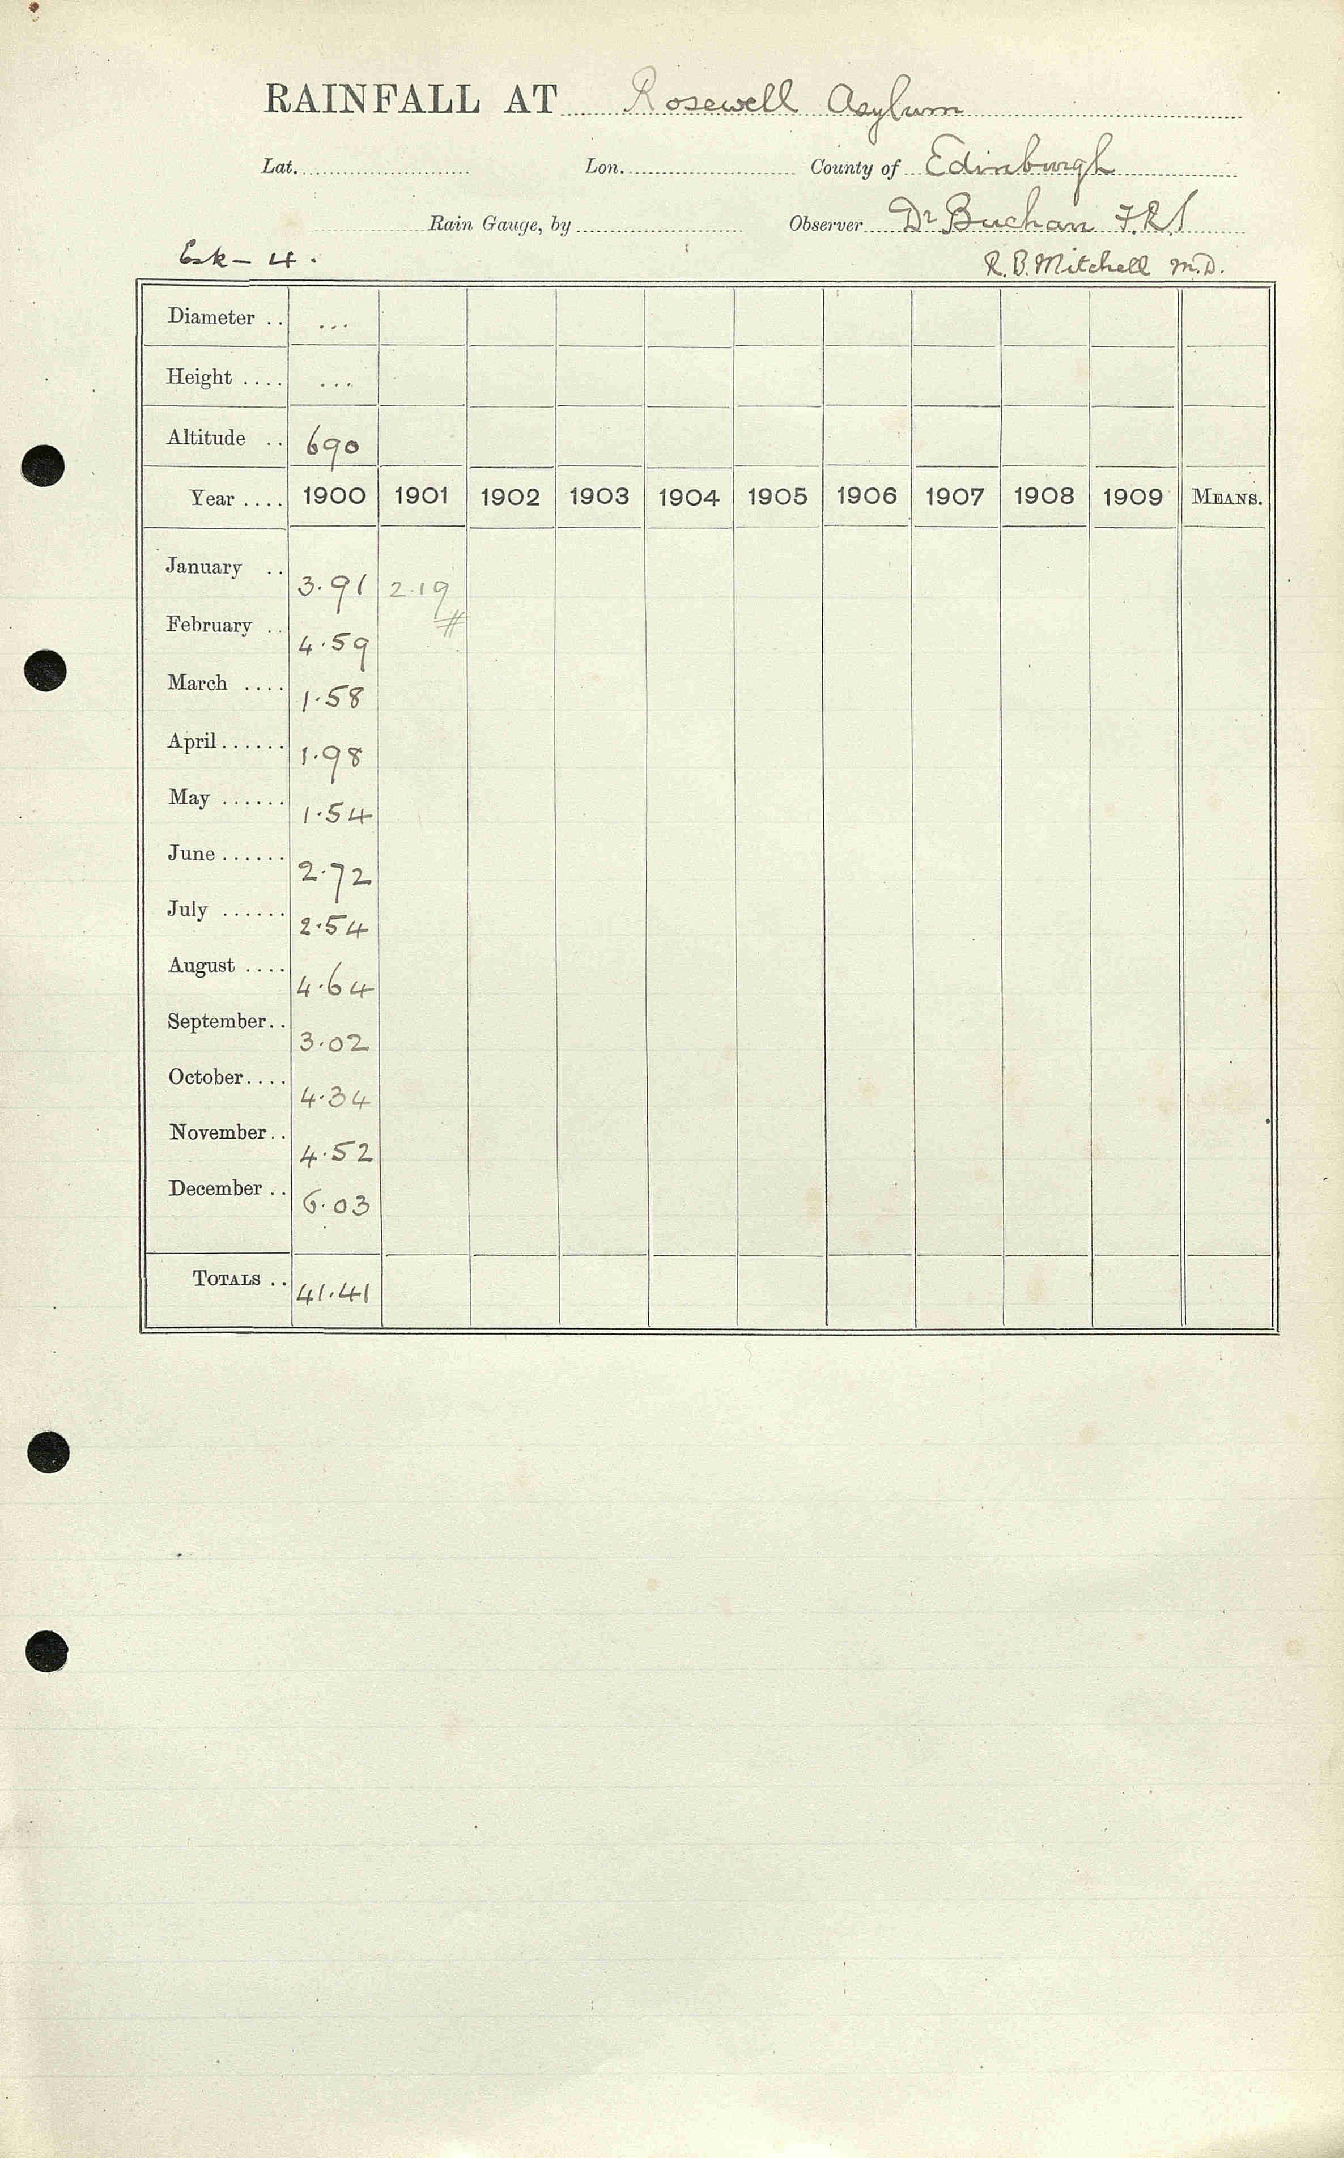 RAINFALL AT Rosewell Asylum
Lat. Lon. County of Edinburgh
Rain Gauge, by Observer Dr Buchan F.R.S
Esk - 4. R.B. Mitchell M.D.
Diameter .. ...
Height .... ...
Altitude .. 690
Year .... 1900 1901 1902 1903 1904 1905 1906 1907 1908 1909 MEANS.
January .. 3.91 2.19
February .. 4.59 #
March .... 1.58
April...... 1.98
May ...... 1.54
June...... 2.72
July ...... 2.54
August .... 4.64
September.. 3.02
October.... 4.34
November.. 4.52
December .. 6.03
TOTALS .. 41.41